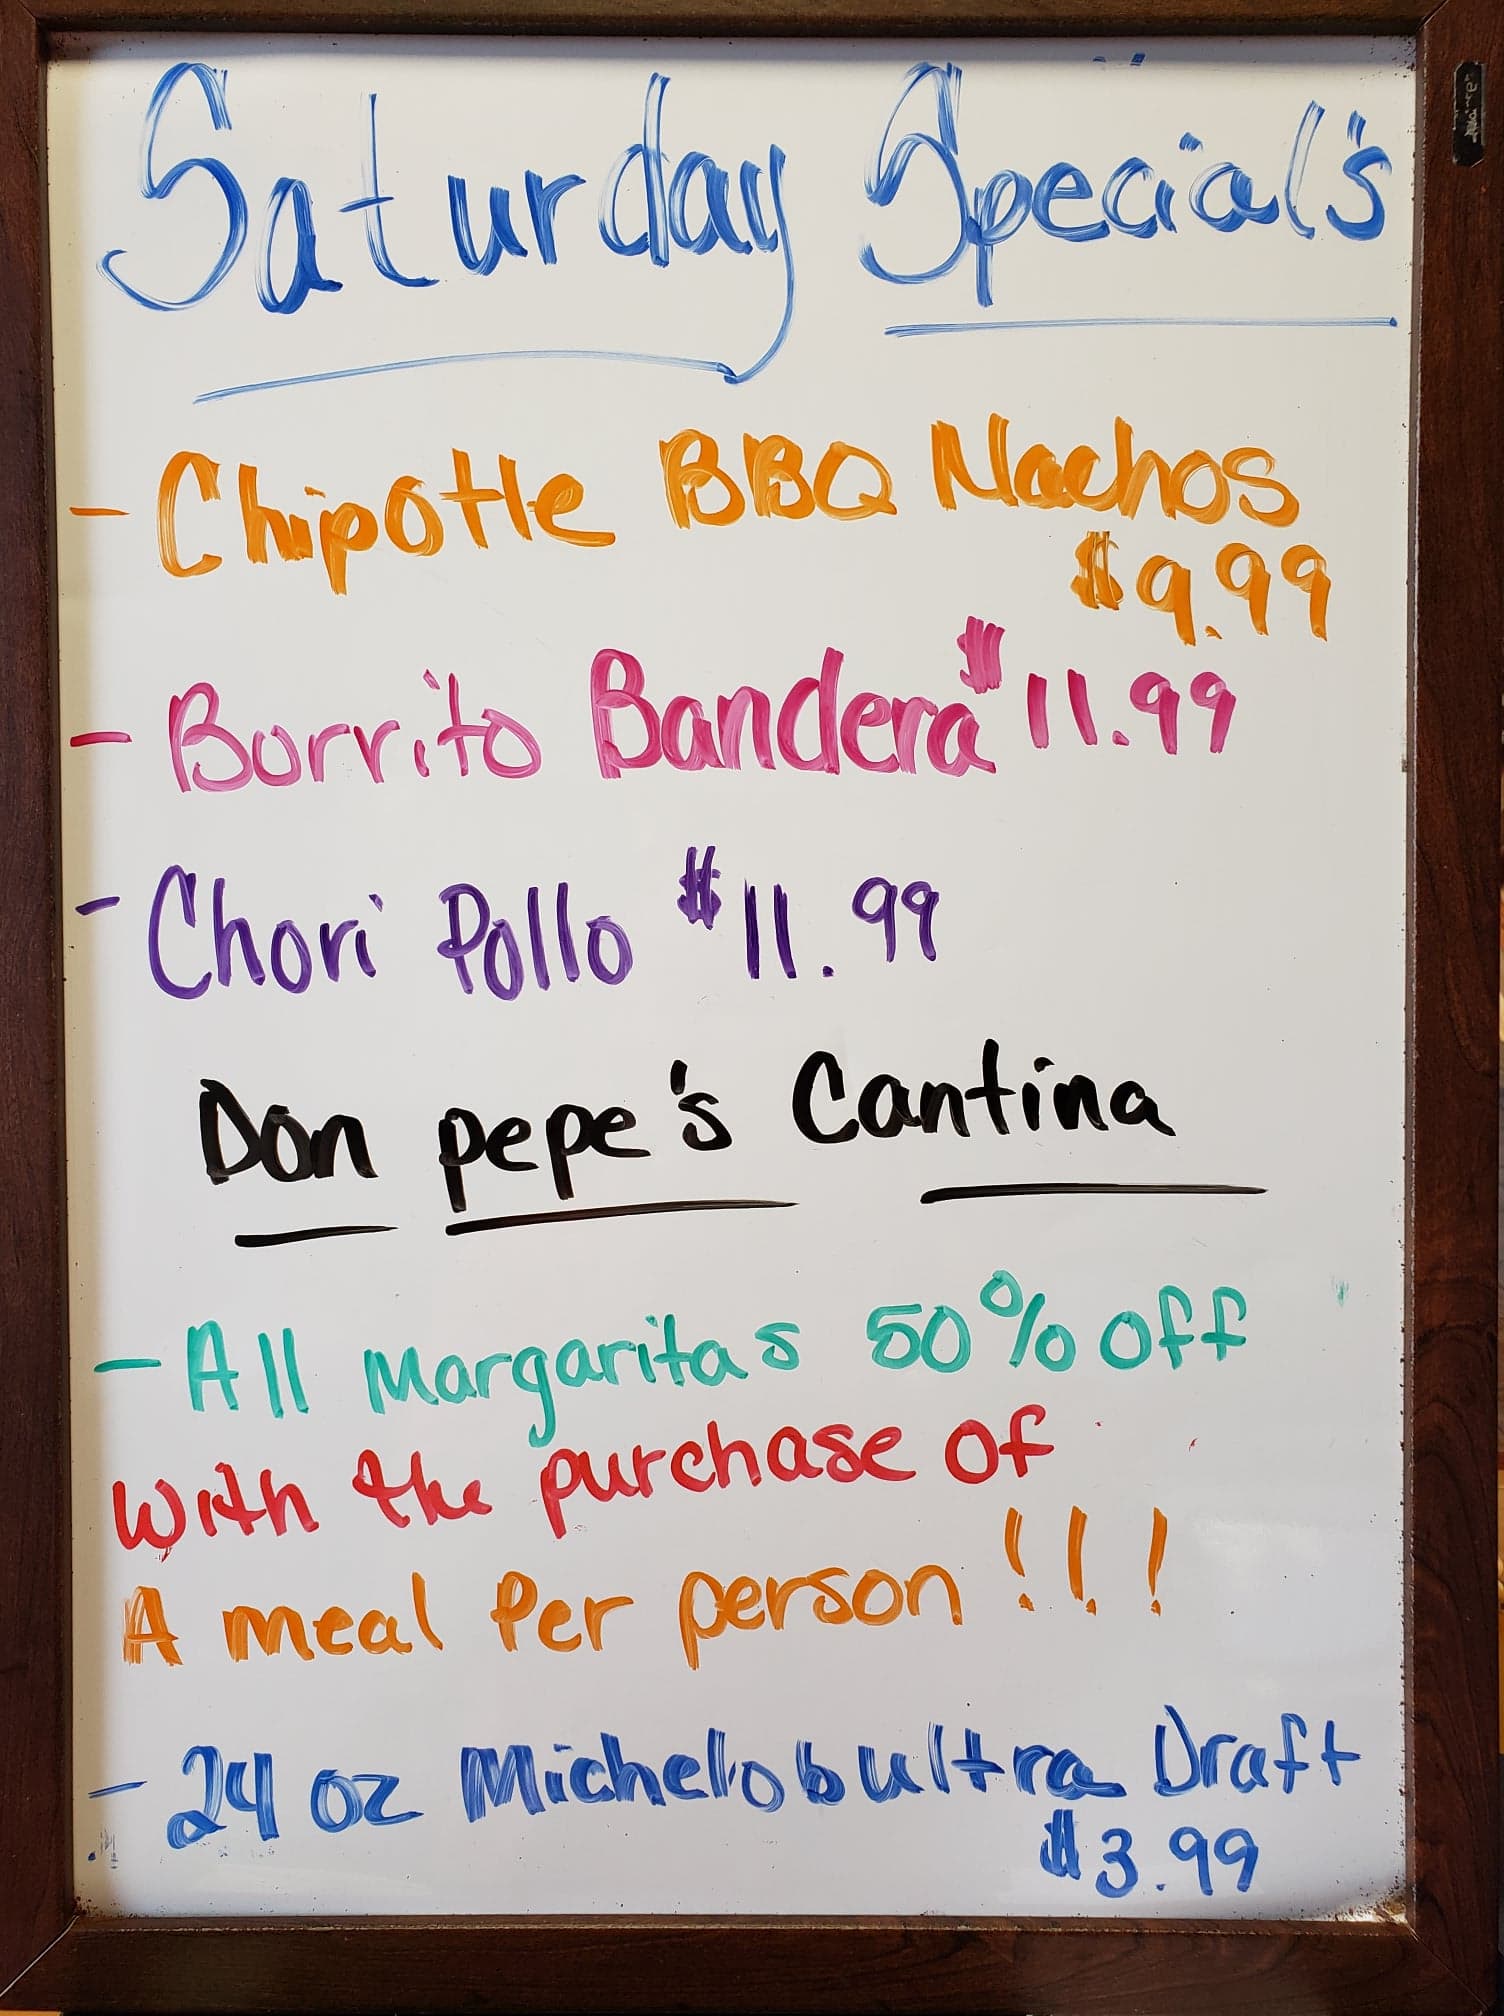 Saturday Special's
- Chipotle BBQ Nachos
$9.99
- Burrito Bandera $11.99
- Chori Pollo $11.99
Don pepe's Cantina
- All Margaritas 50% off
with the purchase of
A meal Per person !!!
- 24 oz Michelob ultra Draft
$3.99